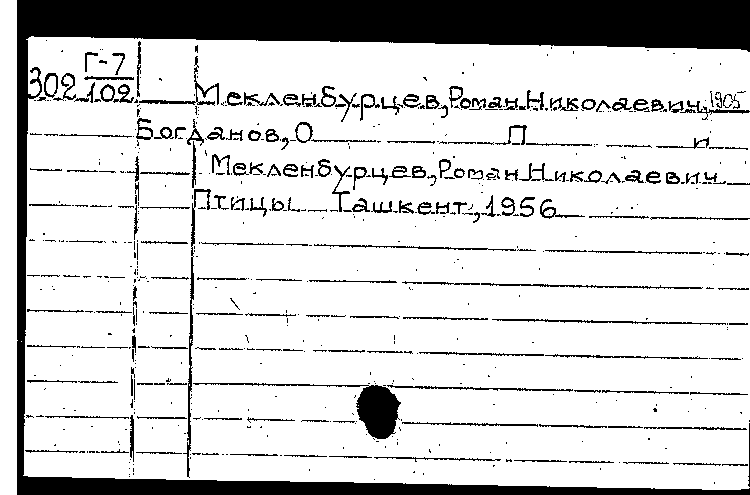 Г-7
302 102 Мекленбурцев, Роман Николаевич, 1905
Богданов, О П и
Мекленбурцев, Роман Николаевич
Птицы Ташкент, 1956